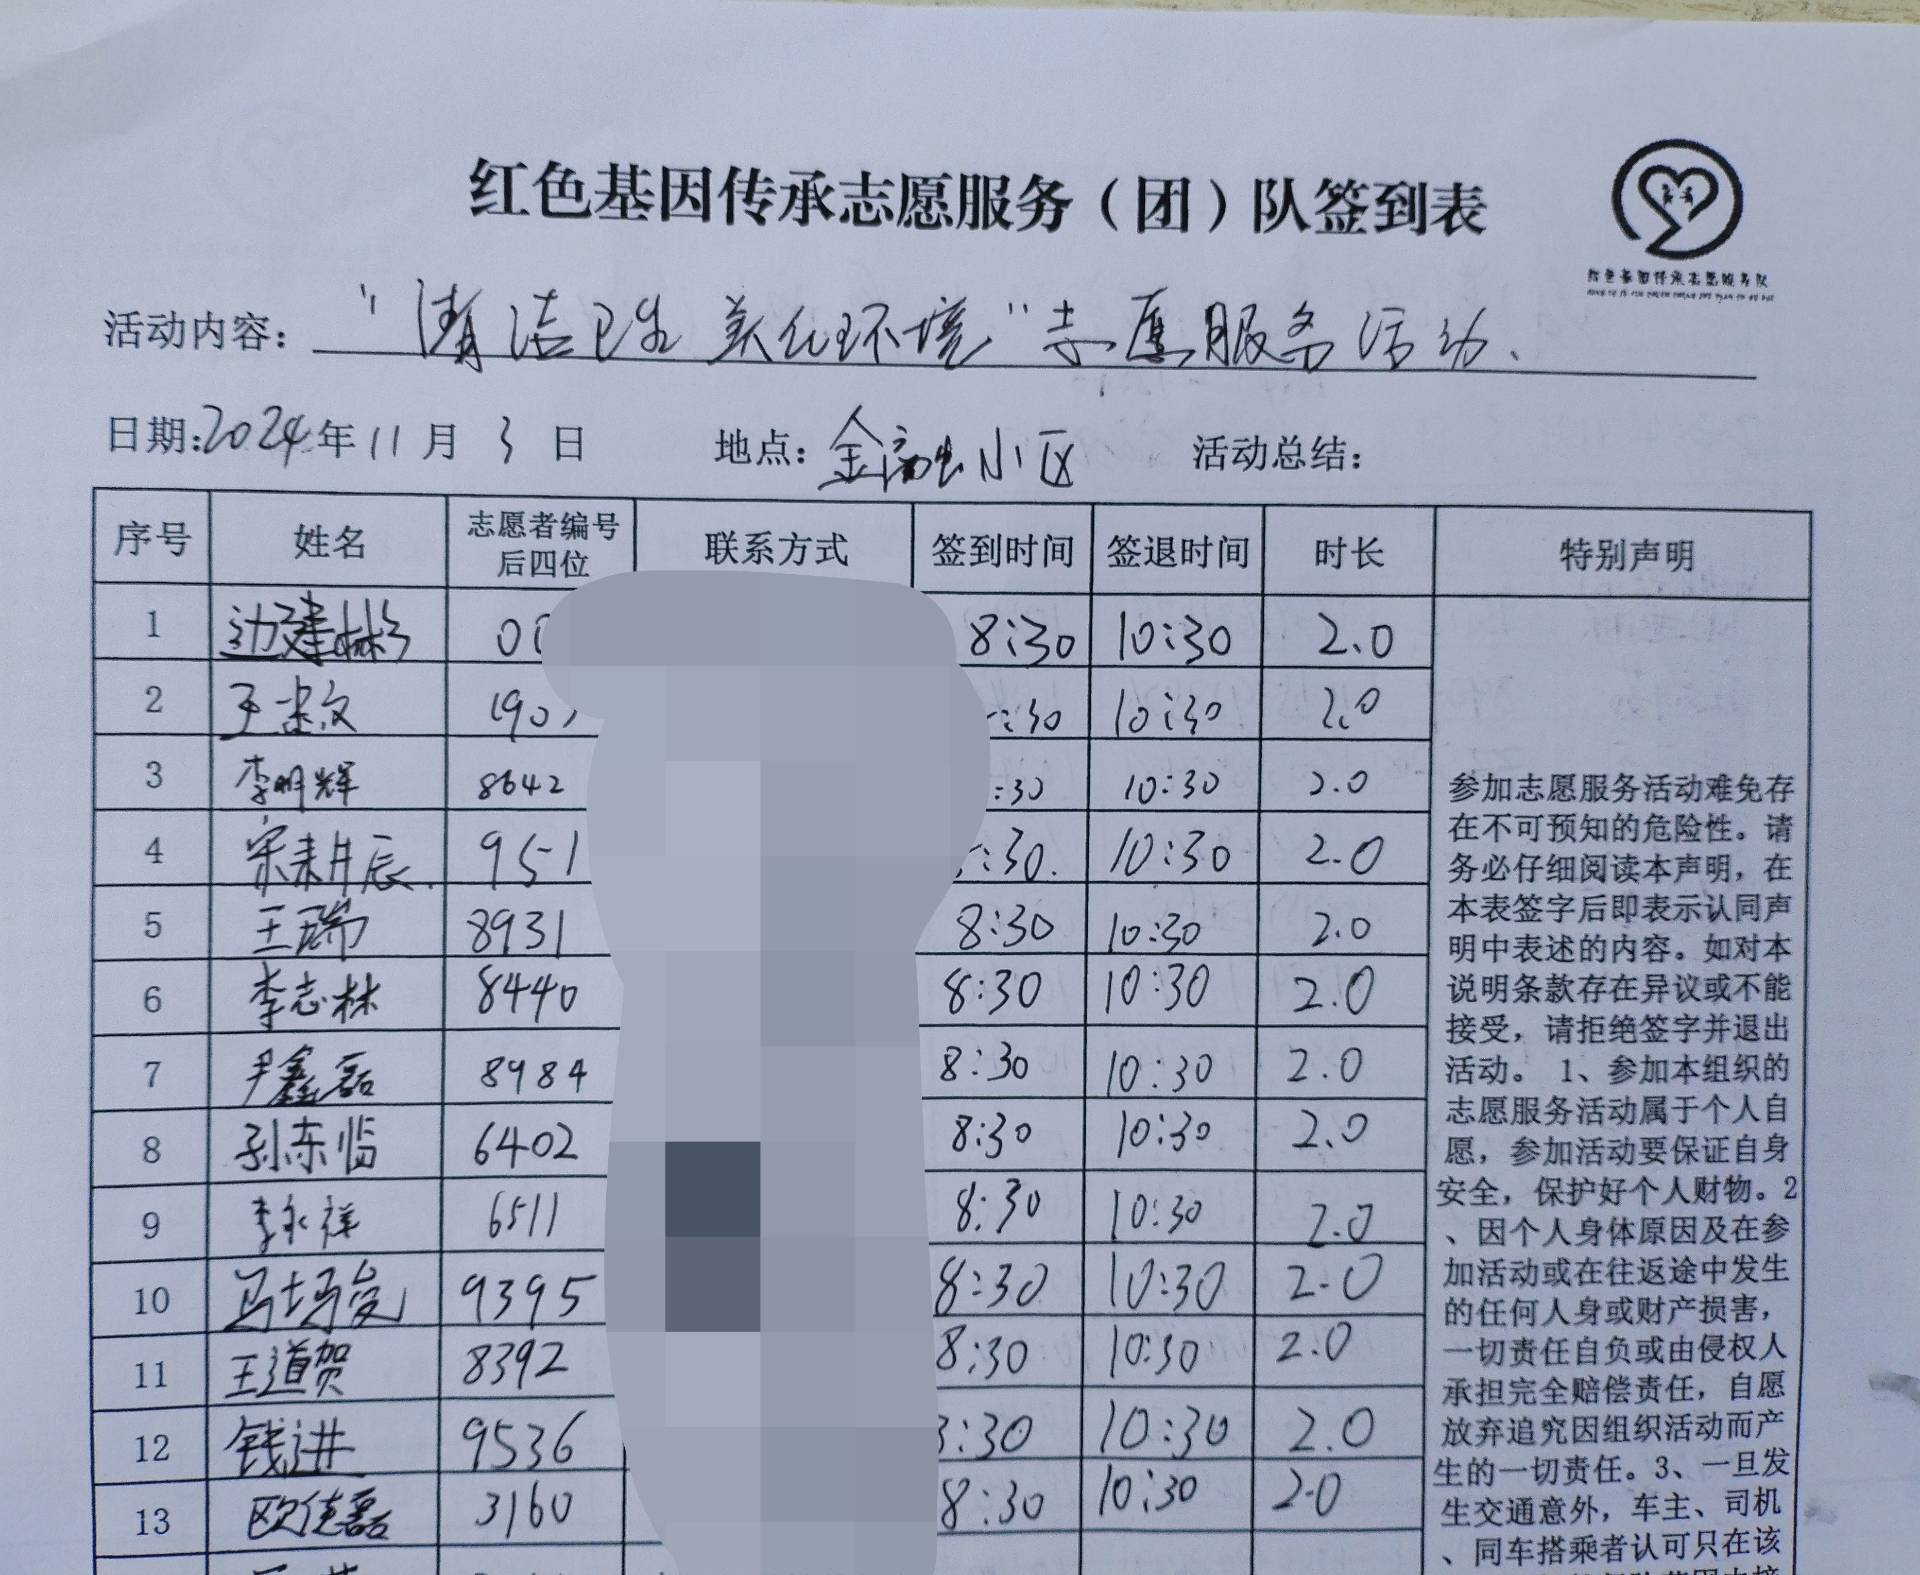 红色基因传承志愿服务（团）队签到表
红色基因传承志愿服务队
活动内容："清洁卫生 美化环境"志愿服务活动.
日期:2024年11月3日 地点：小区 活动总结：
序号 姓名 志愿者编号后四位 联系方式 签到时间 签退时间 时长 特别声明
1 边建彬 8:30 10:30 2.0
2 :30 10:30 2.0
3 李明辉 8642 :30 10:30 2.0
4 951 :30. 10:30 2.0
5 王瑞 8931 8:30 10:30 2.0
6 李志林 8440 8:30 10:30 2.0
7 尹鑫磊 8984 8:30 10:30 2.0
8 孙东临 6402 8:30 10:30 2.0
9 李永祥 6511 8:30 10:30 2.0
10 9395 8:30 10:30 2.0
11 王道贺 8392 8:30 10:30 2.0
12 钱进 9536 :30 10:30 2.0
13 欧德磊 3160 8:30 10:30 2.0
参加志愿服务活动难免存
在不可预知的危险性。请
务必仔细阅读本声明，在
本表签字后即表示认同声
明中表述的内容。如对本
说明条款存在异议或不能
接受，请拒绝签字并退出
活动。 1、参加本组织的
志愿服务活动属于个人自
愿，参加活动要保证自身
安全，保护好个人财物。2
、因个人身体原因及在参
加活动或在往返途中发生
的任何人身或财产损害，
一切责任自负或由侵权人
承担完全赔偿责任，自愿
放弃追究因组织活动而产
生的一切责任。3、一旦发
生交通意外，车主、司机
、同车搭乘者认可只在该